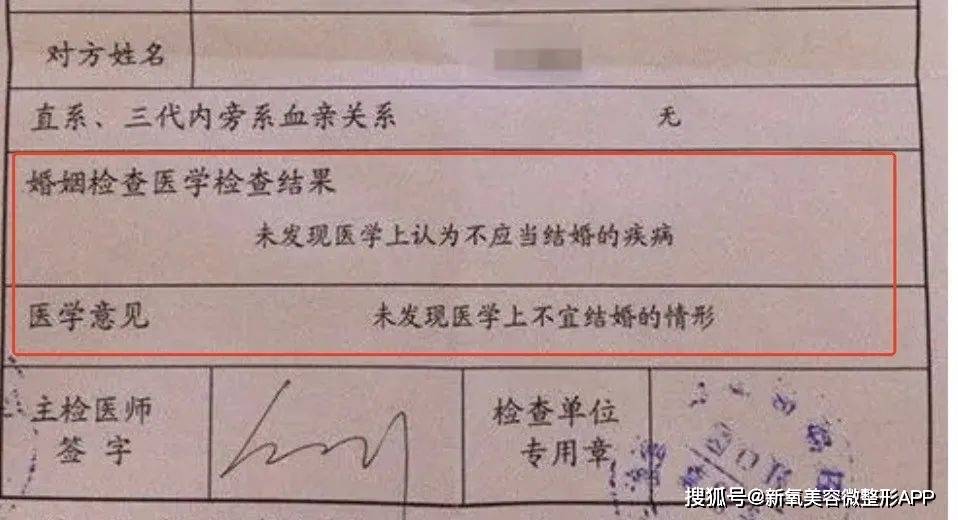 对方姓名
直系、三代内旁系血亲关系 无
婚姻检查医学检查结果
未发现医学上认为不应当结婚的疾病
医学意见 未发现医学上不宜结婚的情形
主检医师
签字
检查单位
专用章
搜狐号@新氧美容微整形APP